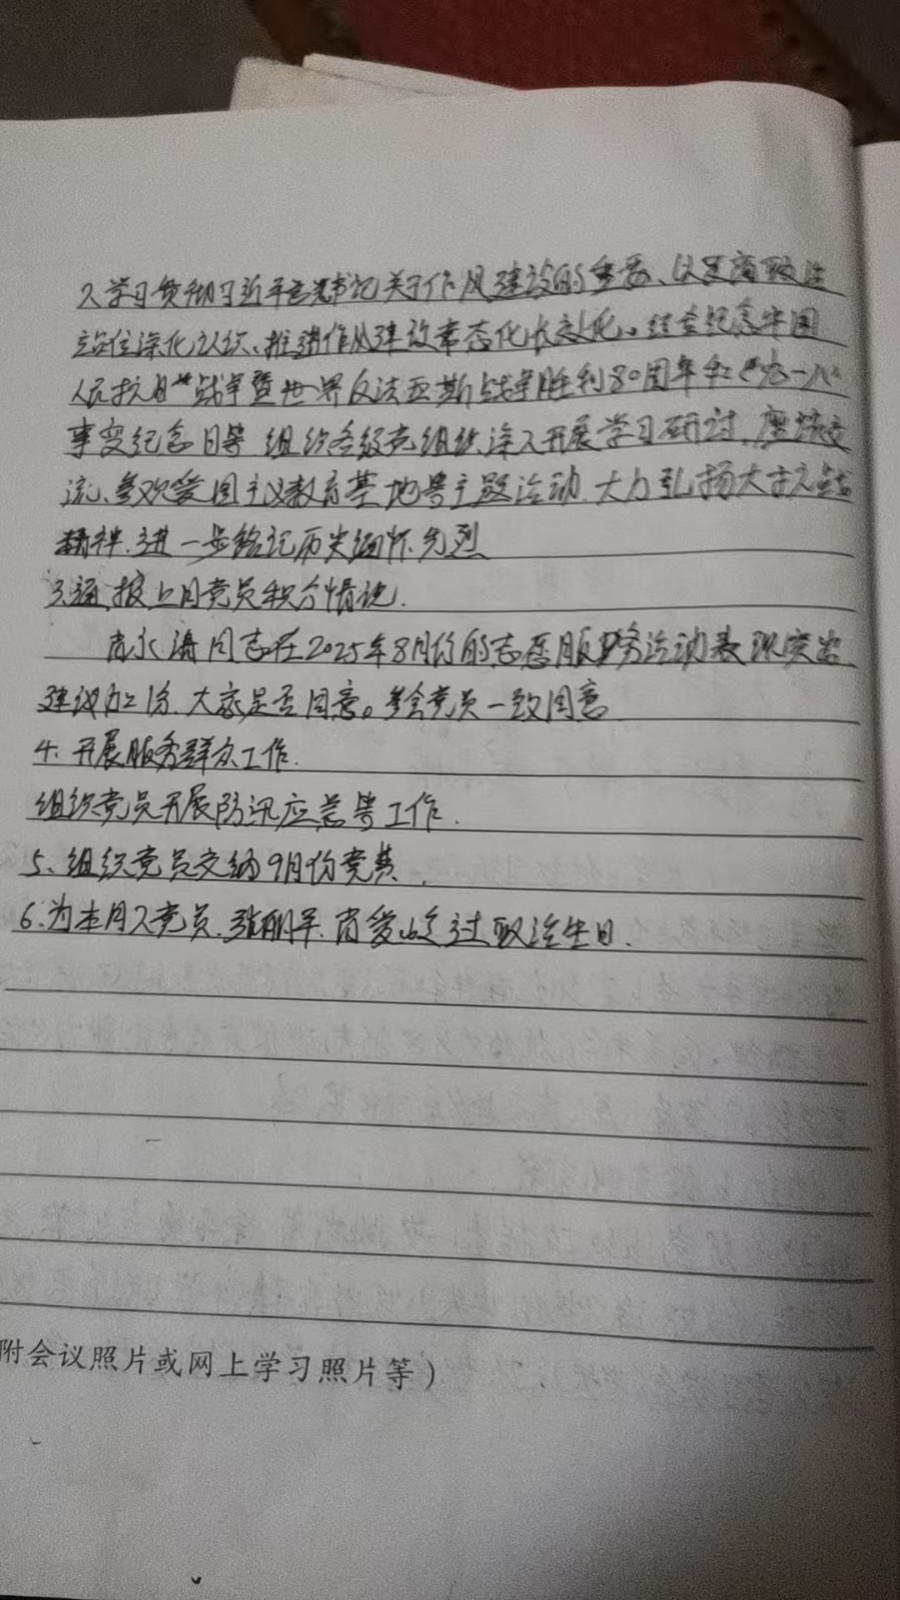 2.学习贯彻习近平总书记关于作风建设的重要、以更高政治
站位深化认识、推进作风建设常态化长效化。结合纪念中国
人民抗日战争暨世界反法西斯战争胜利80周年和"九一八"
事变纪念日等 组织各级党组织深入开展学习研讨、座谈交
流、参观爱国主义教育基地等主题活动、大力弘扬伟大抗战
精神、进一步铭记历史缅怀先烈
3.通报上月党员积分情况.
肖永海同志在2025年8月份的志愿服务活动表现突出
建议加2分、大家是否同意。参会党员一致同意
4.开展服务群众工作.
组织党员开展防汛应急等工作.
5、组织党员交纳9月份党费.
6.为本月入党员、张明军、肖爱 过政治生日.
附会议照片或网上学习照片等）